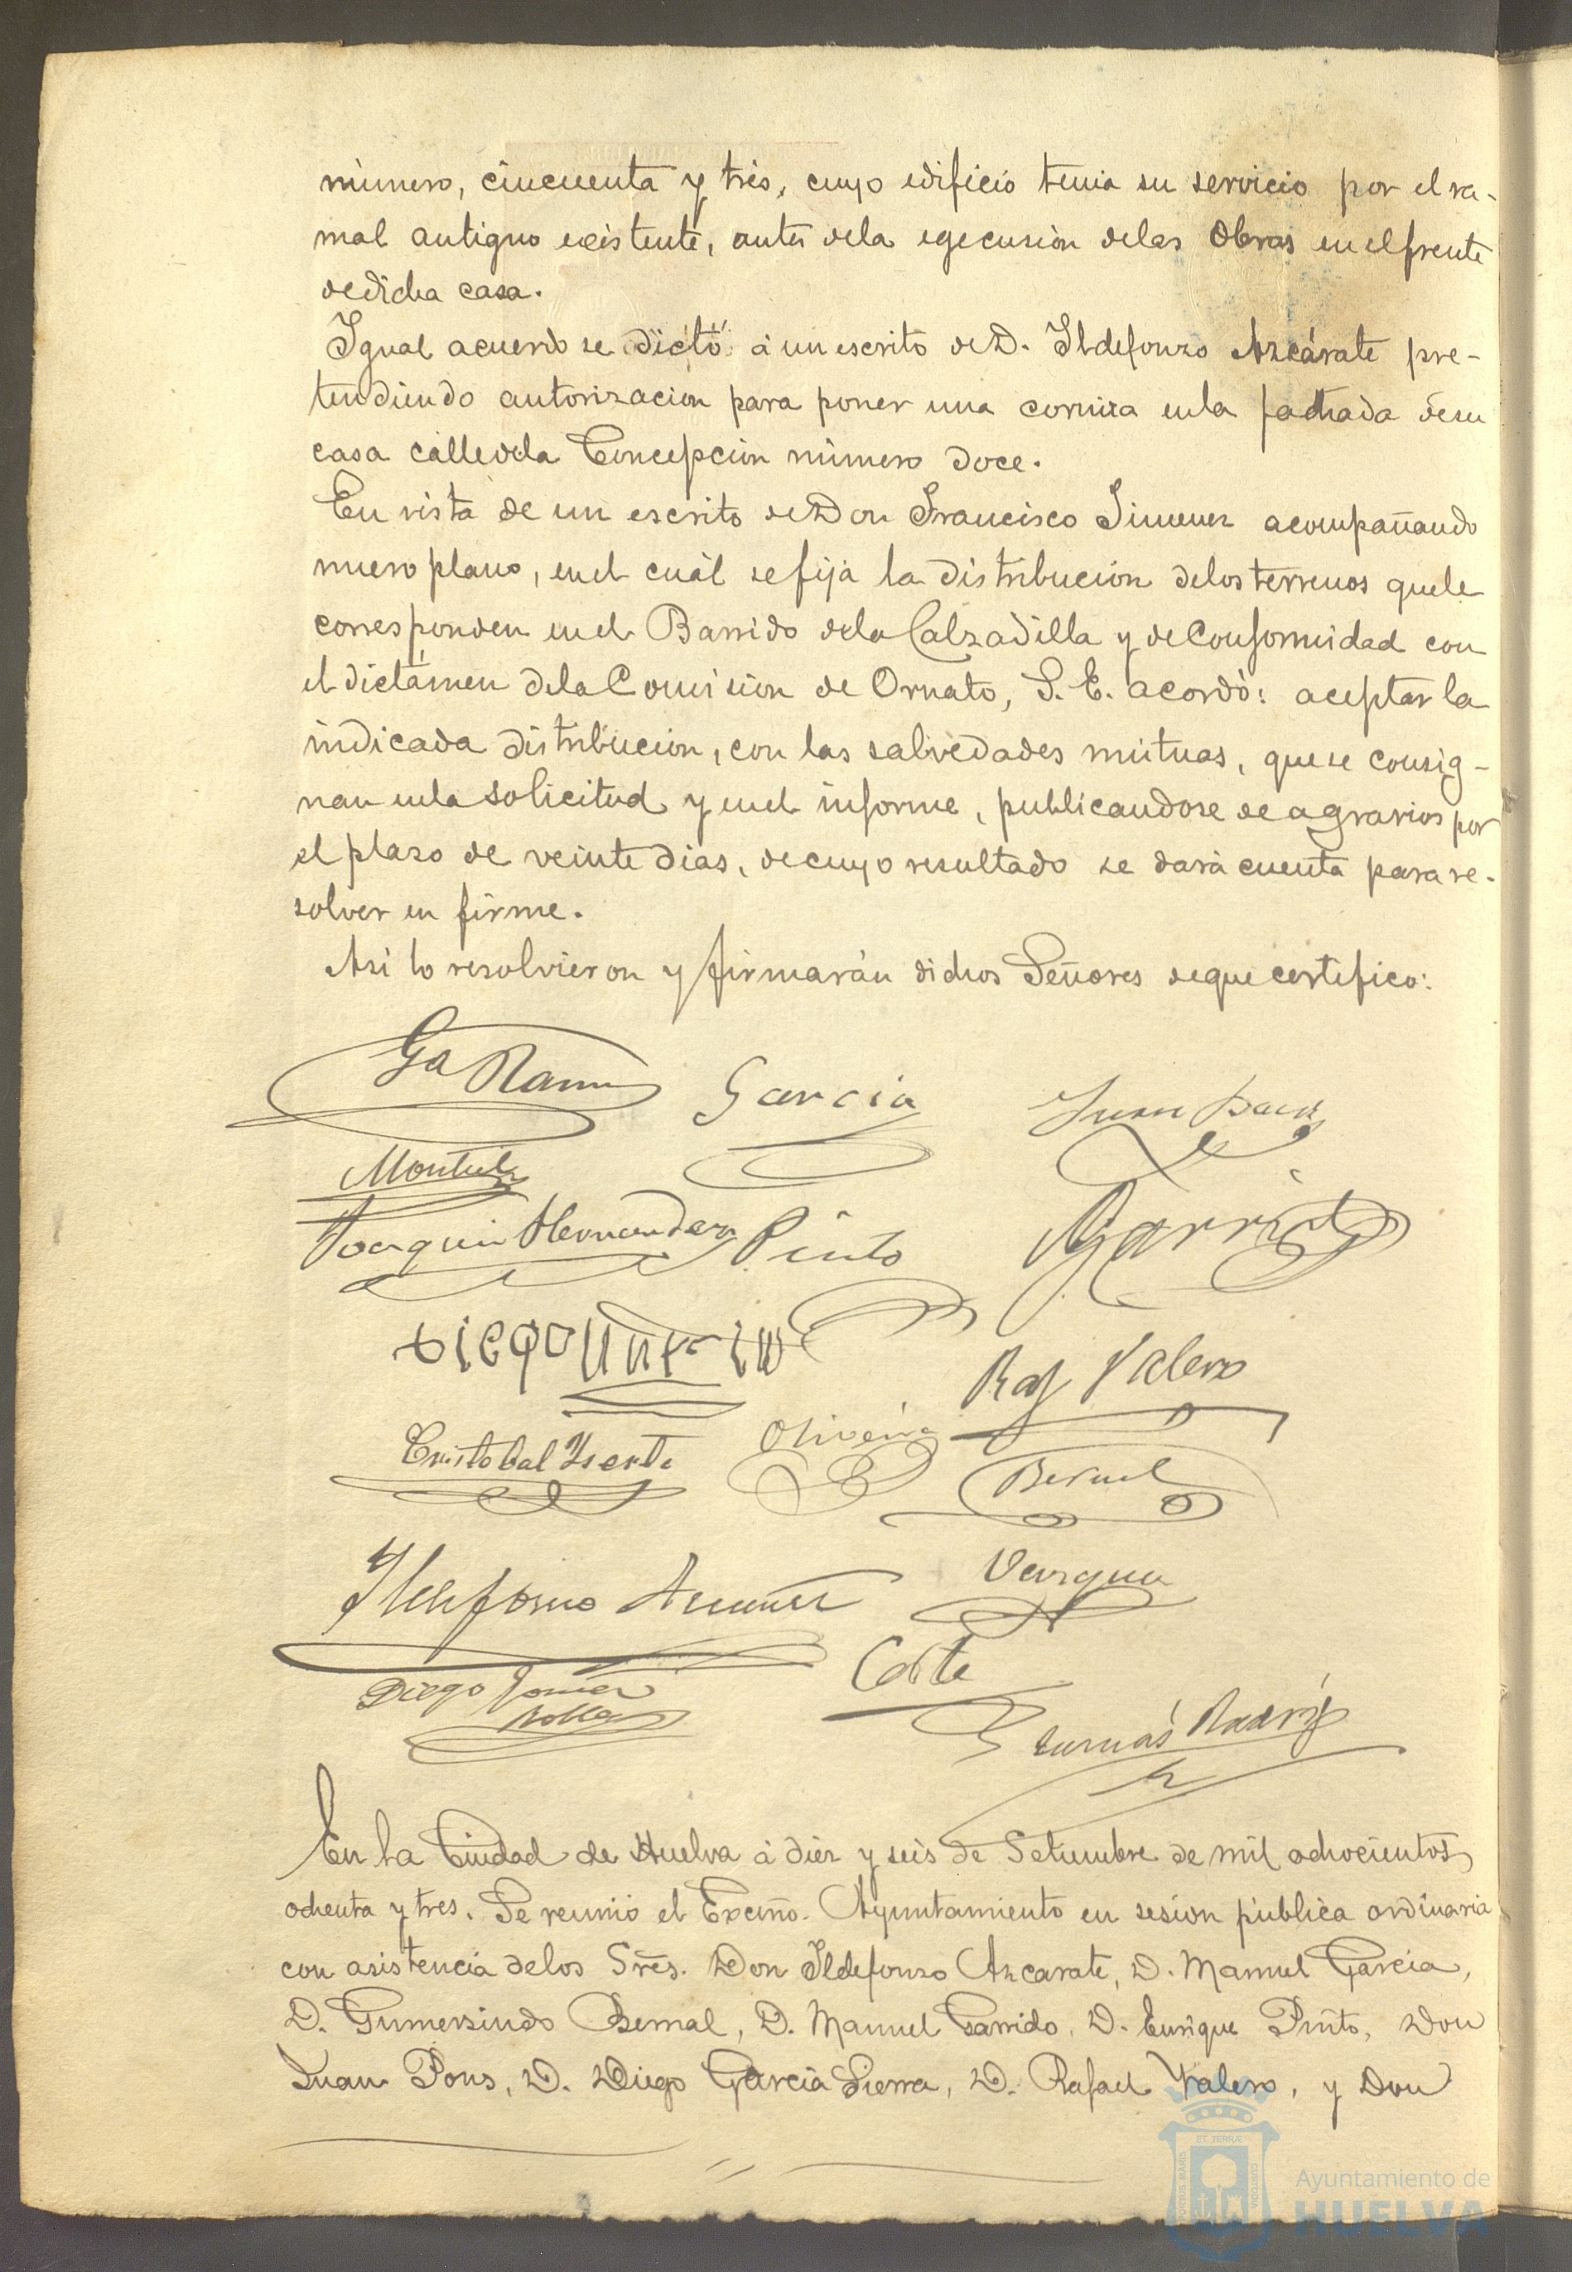 número, cincuenta y trés, cuyo edificio tenia su servicio por el ra-
mal antiguo existente, antes dela egecusión delas Obras enelfrente
dedicha casa.
Igual acuerdo se dictó á un escrito deD. Ildefonzo Azcárate pre-
tendiendo autorizacion para poner una corniza enla fachada desu
casa calledela Concepción número doce.
En vista de un escrito deDon Francisco Jimenez acompañando
nuevo plano, enel cuál sefija la distribución delosterrenos quele
corresponden enel Barrido dela Calzadilla y deConformidad con
el dictámen dela Comision de Ornato, S. E. acordó: aceptar la
indicada distribución, con las salvedades mútuas, quese consig-
nan enla solicitud y enel informe, publicandose de agravios por
el plazo de veinte dias, decuyo resultado se dará cuenta para re-
solver en firme.
Asi lo resolvieron y firmarán dichos Señores deque certifico:
Ga Ramos
Garcia
Montiel
Joaquin Hernandez
Pinto
Garrido
Raf Valero
Cristobal
Oliveira
Bernal
Ildefonso
Vargas
Diego Gomez
Tomás Rodrig
En la Ciudad de Huelva á diéz y seis de Setiembre de mil ochocientos
ochenta y tres. Se reunió el Excmo. Ayuntamiento en sesion pública ordinaria
con asistencia delos Sres. Don Ildefonzo Azcarate, D. Manuel Garcia,
D. Gumersindo Bernal, D. Manuel Garrido, D. Enrique Pinto, Don
Juan Pons, D. Diego Garcia Sierra, D. Rafael Valero, y Don
Ayuntamiento de
HUELVA